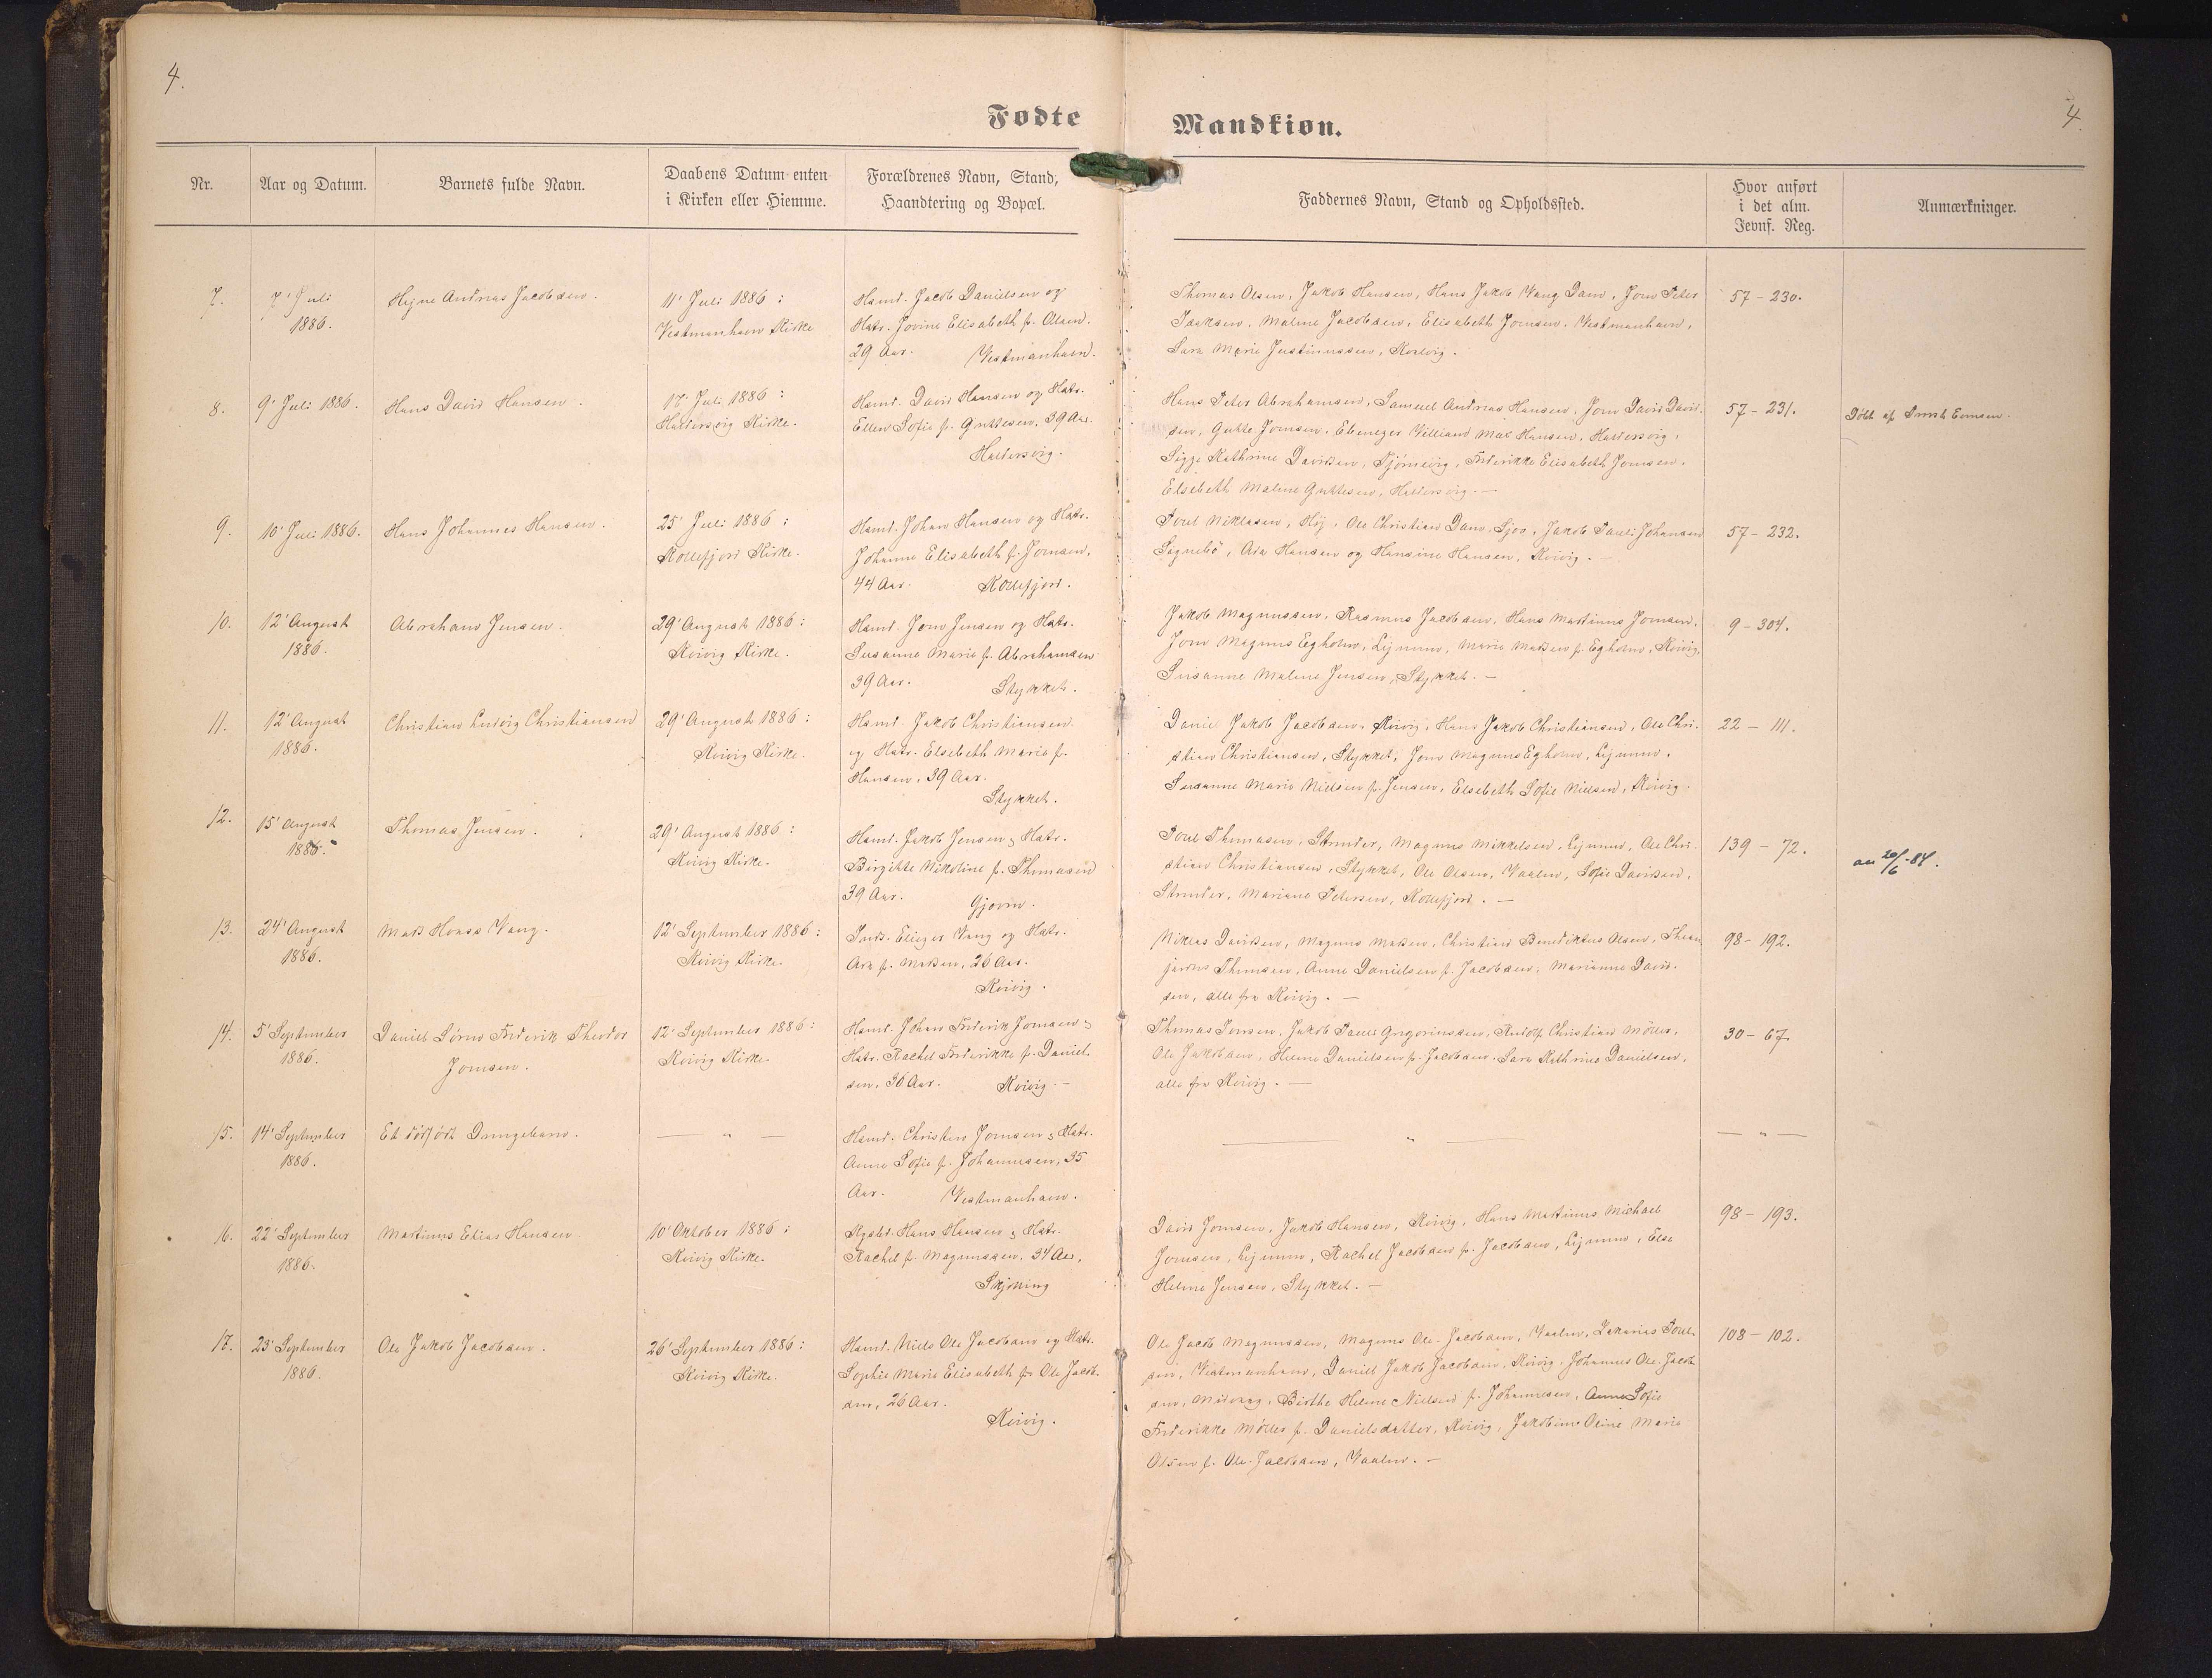 4.
4.
Fødte
Mandkiøn.
Nr.
Aar og Datum.
Barnets fulde Navn.
Daabens Datum enten
i Kirken eller Hiemme.
Forældrenes Navn, Stand,
Haandtering og Bopæl.
Faddernes Navn, Stand og Opholdssted.
Hvor anført
i det alm.
Jevnf. Reg.
Anmærkninger.
7.
7' Juli
1886.
Hejne Andreas Jacobsen.
11' Juli 1886:
Vestmanhavn Kirke
Hsmd. Jacob Danielsen og
Hstr. Jovine Elisabeth f. Olsen.
29 Aar. Vestmanhavn.
Thomas Olsen, Jakob Hansen, Hans Jakob Vang Dam, Joen Peter
Isaksen, Malene Jacobsen, Elisabeth Joensen, Vestmanhavn,
Sara Marie Justinussen, Kvalvig.
57-230.
8.
9' Juli 1886.
Hans David Hansen.
17' Juli 1886:
Haldersvig Kirke.
Hsmd. David Hansen og Hstr.
Ellen Sofie f. Guttesen, 39 Aar.
Haldersvig.
Hans Peter Abrahamsen, Samuel Andreas Hansen, Joen David David-
sen, Gutte Joensen, Ebenezer Villiand Hansen, Haldersvig,
Sigge Kathrine Davidsen, Tjørnevig, Frederikke Elisabeth Joensen,
Elsebeth Malene Guttesen, Haldersvig. —
57-231.
Døbt af Provst Evensen.
9.
10' Juli 1886.
Hans Johannes Hansen.
25' Juli 1886:
Kollefjord Kirke.
Hsmd. Johan Hansen og Hstr.
Johanne Elisabeth f. Joensen,
44 Aar. Kollefjord.
Poul Niklasen, Høj, Ole Christian Dam, Sjov, Jakob Pauli Johansen
Signebø, Ada Hansen og Hansine Hansen, Kvivig. —
57-232.
10.
12' August
1886.
Abraham Jensen.
29' August 1886:
Kvivig Kirke.
Hsmd. Joen Jensen og Hstr.
Susanne Marie f. Abrahamsen
39 Aar. Stykket.
Jakob Magnussen, Rasmus Jacobsen, Hans Martinus Joensen,
Joen Magnus Egholm, Lejnum, Marie Madsen f. Egholm, Kvivig,
Susanne Malene Jensen, Stykket. —
9-304.
11.
12' August
1886.
Christian Ludvig Christiansen
29' August 1886:
Kvivig Kirke.
Hsmd. Jakob Christiansen
og Hstr. Elsebeth Marie f.
Hansen, 39 Aar.
Stykket.
Daniel Jakob Jacobsen, Kvivig, Hans Jakob Christiansen, Ole Chri-
stian Christiansen, Stykket, Joen Magnus Egholm, Lejnum,
Susanne Marie Nielsen f. Jensen, Elsebeth Sofie Nielsen, Kvivig.
22-111.
12.
15' August
1886.
Thomas Jensen.
29' August 1886:
Kvivig Kirke.
Hsmd. Jakob Jensen & Hstr.
Birgitte Nikoline f. Thomasen
39 Aar. Gjovre.
Poul Thomasen, Strender, Magnus Mikkelsen, Lejnum, Ole Chri-
stian Christiansen, Stykket, Ole Olsen, Vaalen, Sofie Davidsen,
Strender, Mariane Petersen, Kollefjord. —
139-72.
20/6-84.
13.
24' August
1886.
Mads Honse Vang.
12' September 1886:
Kvivig Kirke.
Eliezer Vang og Hstr.
Ada f. Madsen, 26 Aar.
Kvivig.
Niklas Davidsen, Magnus Madsen, Christian Benediktus Olsen,
Thomsen, Anne Danielsen f. Jacobsen, Marianne David-
sen, alle fra Kvivig. —
98-192.
14.
5' September
1886.
Daniel Søren Frederik Theodor
Joensen.
12' September 1886:
Kvivig Kirke.
Hsmd. Johan Frederik Joensen &
Hstr. Rachel Frederikke f. Daniel-
sen, 36 Aar. Kvivig. —
Thomas Joensen, Jakob Pauli Gregoriussen, Rudolf Christian Møller,
Ole Jakobsen, Helene Danielsen f. Jacobsen, Sara Kathrine Danielsen,
alle fra Kvivig. —
30-67.
15.
14' September
1886.
Et dødfødt Drengebarn.
— " —
Hsmd. Christen Joensen & Hstr.
Anne Sofie f. Johannesen, 35
Aar. Vestmanhavn.
— " —
— " —
16.
22' September
1886.
Martinus Elias Hansen
10' Oktober 1886:
Kvivig Kirke.
Hans Hansen & Hstr.
Rachel f. Magnussen, 34 Aar,
Skjæling
David Joensen, Jakob Hansen, Kvivig, Hans Martinus Michael
Joensen, Lejnum, Rachel Jacobsen f. Jacobsen, Lejnum, Else
Helene Jensen, Stykket. —
98-193.
17.
23' September
1886.
Ole Jakob Jacobsen.
26' September 1886:
Kvivig Kirke.
Hsmd. Niels Ole Jacobsen og Hstr.
Sophie Marie Elisabeth f. Ole Jacob-
sen, 26 Aar.
Kvivig.
Ole Jacob Magnussen, Magnus Ole-Jacobsen, Vaalen, Zakarias Poul-
sen, Vestmanhavn, Daniel Jakob Jacobsen, Kvivig, Johannes Ole-Jacob
sen, Midvaag, Birthe Helene Nielsen f. Johannesen, Anne Sofie
Frederikke Møller f. Danielsdatter, Kvivig, Jakobine Oline Marie
Olsen f. Ole-Jacobsen, Vaalen. —
108-102.